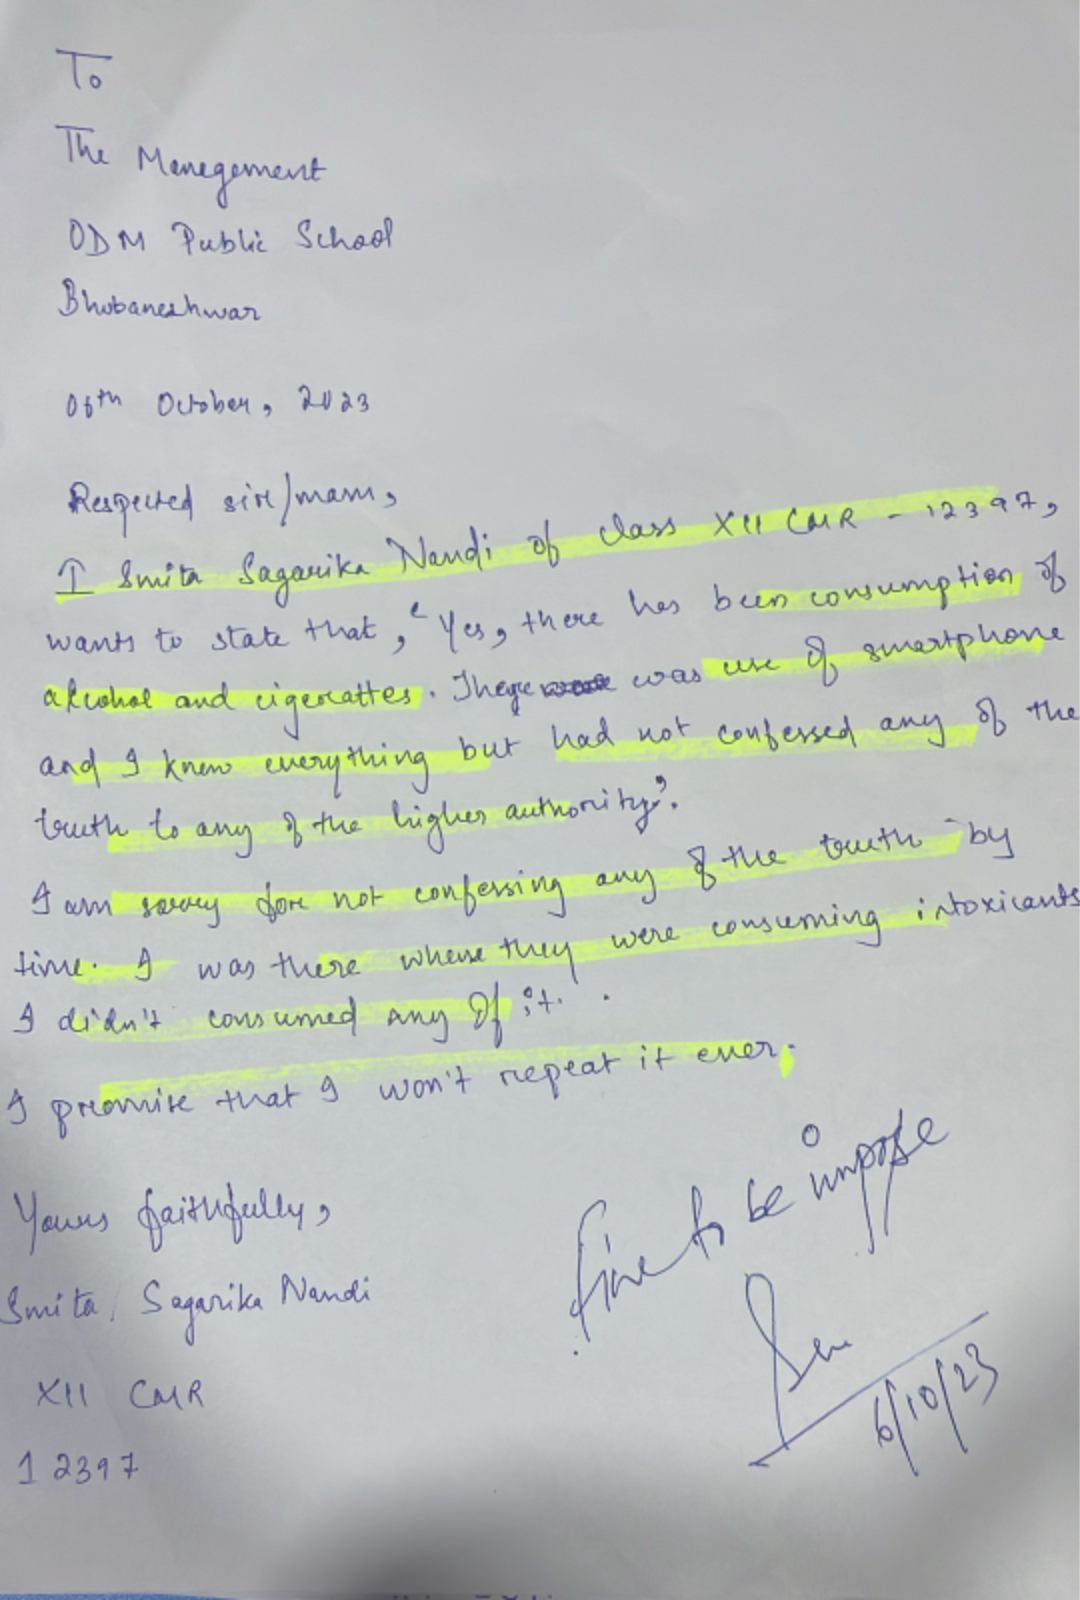 To
The Manegement
ODM Public School
Bhubaneshwar
06th October, 2023
Respected sire/mam,
I Smita Sagarika Nandi of class XII CMR - 12397,
wants to state that, "Yes, there has been consumption of
alcohol and cigerattes. There was use of smartphone
and I knew everything but had not confessed any of the
truth to any of the higher authority".
I am sorry for not confessing any of the truth by
time. I was there where they were consuming intoxicants
I didn't consumed any of it.
I promise that I won't repeat it ever.
Yours faithfully,
Smita Sagarika Nandi
XII CMR
12397
fine to be impose
6/10/23